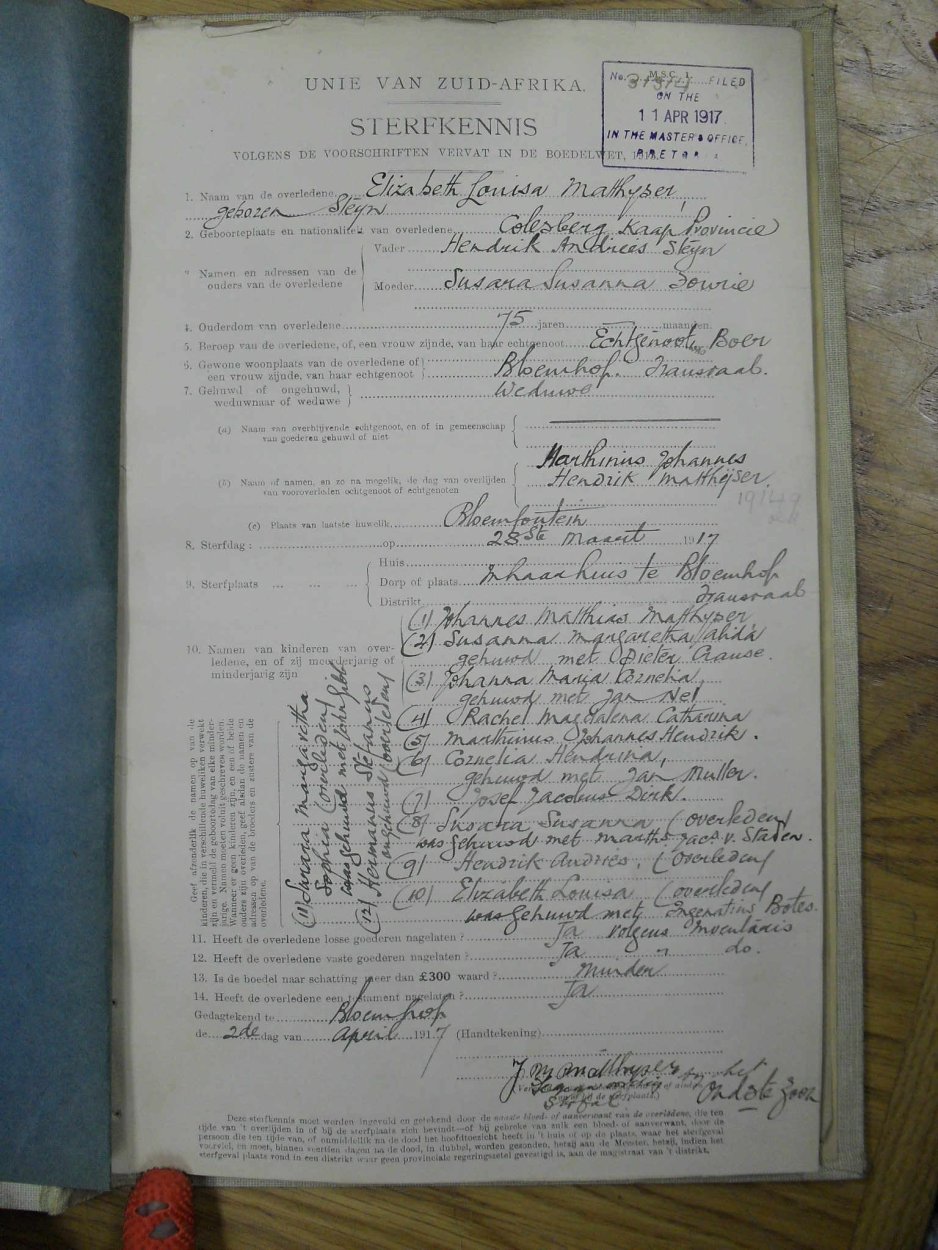 UNIE VAN ZUID-AFRIKA.
No. M.S.C. 1. FILED
ON THE
11 APR 1917
IN THE MASTER'S OFFICE,
PRETORIA
STERFKENNIS
VOLGENS DE VOORSCHRIFTEN VERVAT IN DE BOEDELWET,
1. Naam van de overledene Elizabeth Louisa Matthyser,
geboren Steyn
2. Geboorteplaats en nationaliteit van overledene Colesberg Kaap Provincie
Vader Hendrik Andries Steyn
Namen en adressen van de
ouders van de overledene
Moeder Susara Susanna Fowrie
4. Ouderdom van overledene 75 jaren maanden.
5. Beroep van de overledene, of, een vrouw zijnde, van haar echtgenoot Echtgenoote Boer
6. Gewone woonplaats van de overledene of
een vrouw zijnde, van haar echtgenoot Bloemhof. Transvaal.
7. Gehuwd of ongehuwd,
weduwnaar of weduwe Weduwe
(a) Naam van overblijvende echtgenoot, en of in gemeenschap
van goederen gehuwd of niet
Marthinus Johannes
(b) Naam of namen, en zo na mogelik, de dag van overlijden
van vooroverleden echtgenoot of echtgenoten
Hendrik Matthijser.
(c) Plaats van laatste huwelik Bloemfontein
8. Sterfdag: op 28ste Maart 1917
Huis
9. Sterfplaats Dorp of plaats In haar huis te Bloemhof
Distrikt Transvaal
10. Namen van kinderen van over-
ledene, en of zij meerderjarig of
minderjarig zijn
(1) Johannes Matthias Mathyser
(2) Susanna Margaretha Alida
gehuwd met Pieter Crause.
(3) Johanna Maria Cornelia,
gehuwd met Jan Nel
(4) Rachel Magdalena Catharina
(5) Marthinus Johannes Hendrik.
(6) Cornelia Hendrina,
gehuwd met Jan Muller.
(7) Josef Jacobus Dirk.
(8) Susara Susanna (overleden)
was gehuwd met Marths. Jac. v. Staden.
(9) Hendrik Andries. (overleden)
(10) Elizabeth Louisa (overleden)
was gehuwd met Ingenatius Botes.
Geef afzonderlik de namen op van de
kinderen, die in verschillende huweliken verwekt
zijn en vermeld de geboortedag van elke minder-
jarige. Namen moeten voluit geschreven worden.
Wanneer er geen kinderen zijn, en een of beide
ouders zijn overleden, geef alsdan de namen en
adressen op van de broeders en zusters van de
overledene.
(11) Margaretha
Sophia (overleden)
was gehuwd met John Gibb
(12) Hermanus Stefanus
ongehuwd (overleden)
11. Heeft de overledene losse goederen nagelaten? Ja volgens Inventaris
12. Heeft de overledene vaste goederen nagelaten? Ja " do.
13. Is de boedel naar schatting meer dan £300 waard? Minder
14. Heeft de overledene een testament nagelaten? Ja
Gedagtekend te Bloemhof
de 2de dag van April 1917 (Handtekening)
J M Matthyser
het
Oudste Zoon
Deze sterfkennis moet worden ingevuld en getekend door de naaste bloed- of aanverwant van de overledene, die ten
tijde van 't overlijden in of bij de sterfplaats zich bevindt—of bij gebreke van zulk een bloed- of aanverwant, door de
persoon die ten tijde van, of onmiddellik na de dood het hoofdtoezicht heeft in 't huis of op de plaats, waar het sterfgeval
voorviel, en moet, binnen veertien dagen na de dood, in dubbel, worden gezonden, hetzij aan de Meester, hetzij, indien het
sterfgeval plaats vond in een distrikt waar geen provinciale regeringszetel gevestigd is, aan de magistraat van 't distrikt.